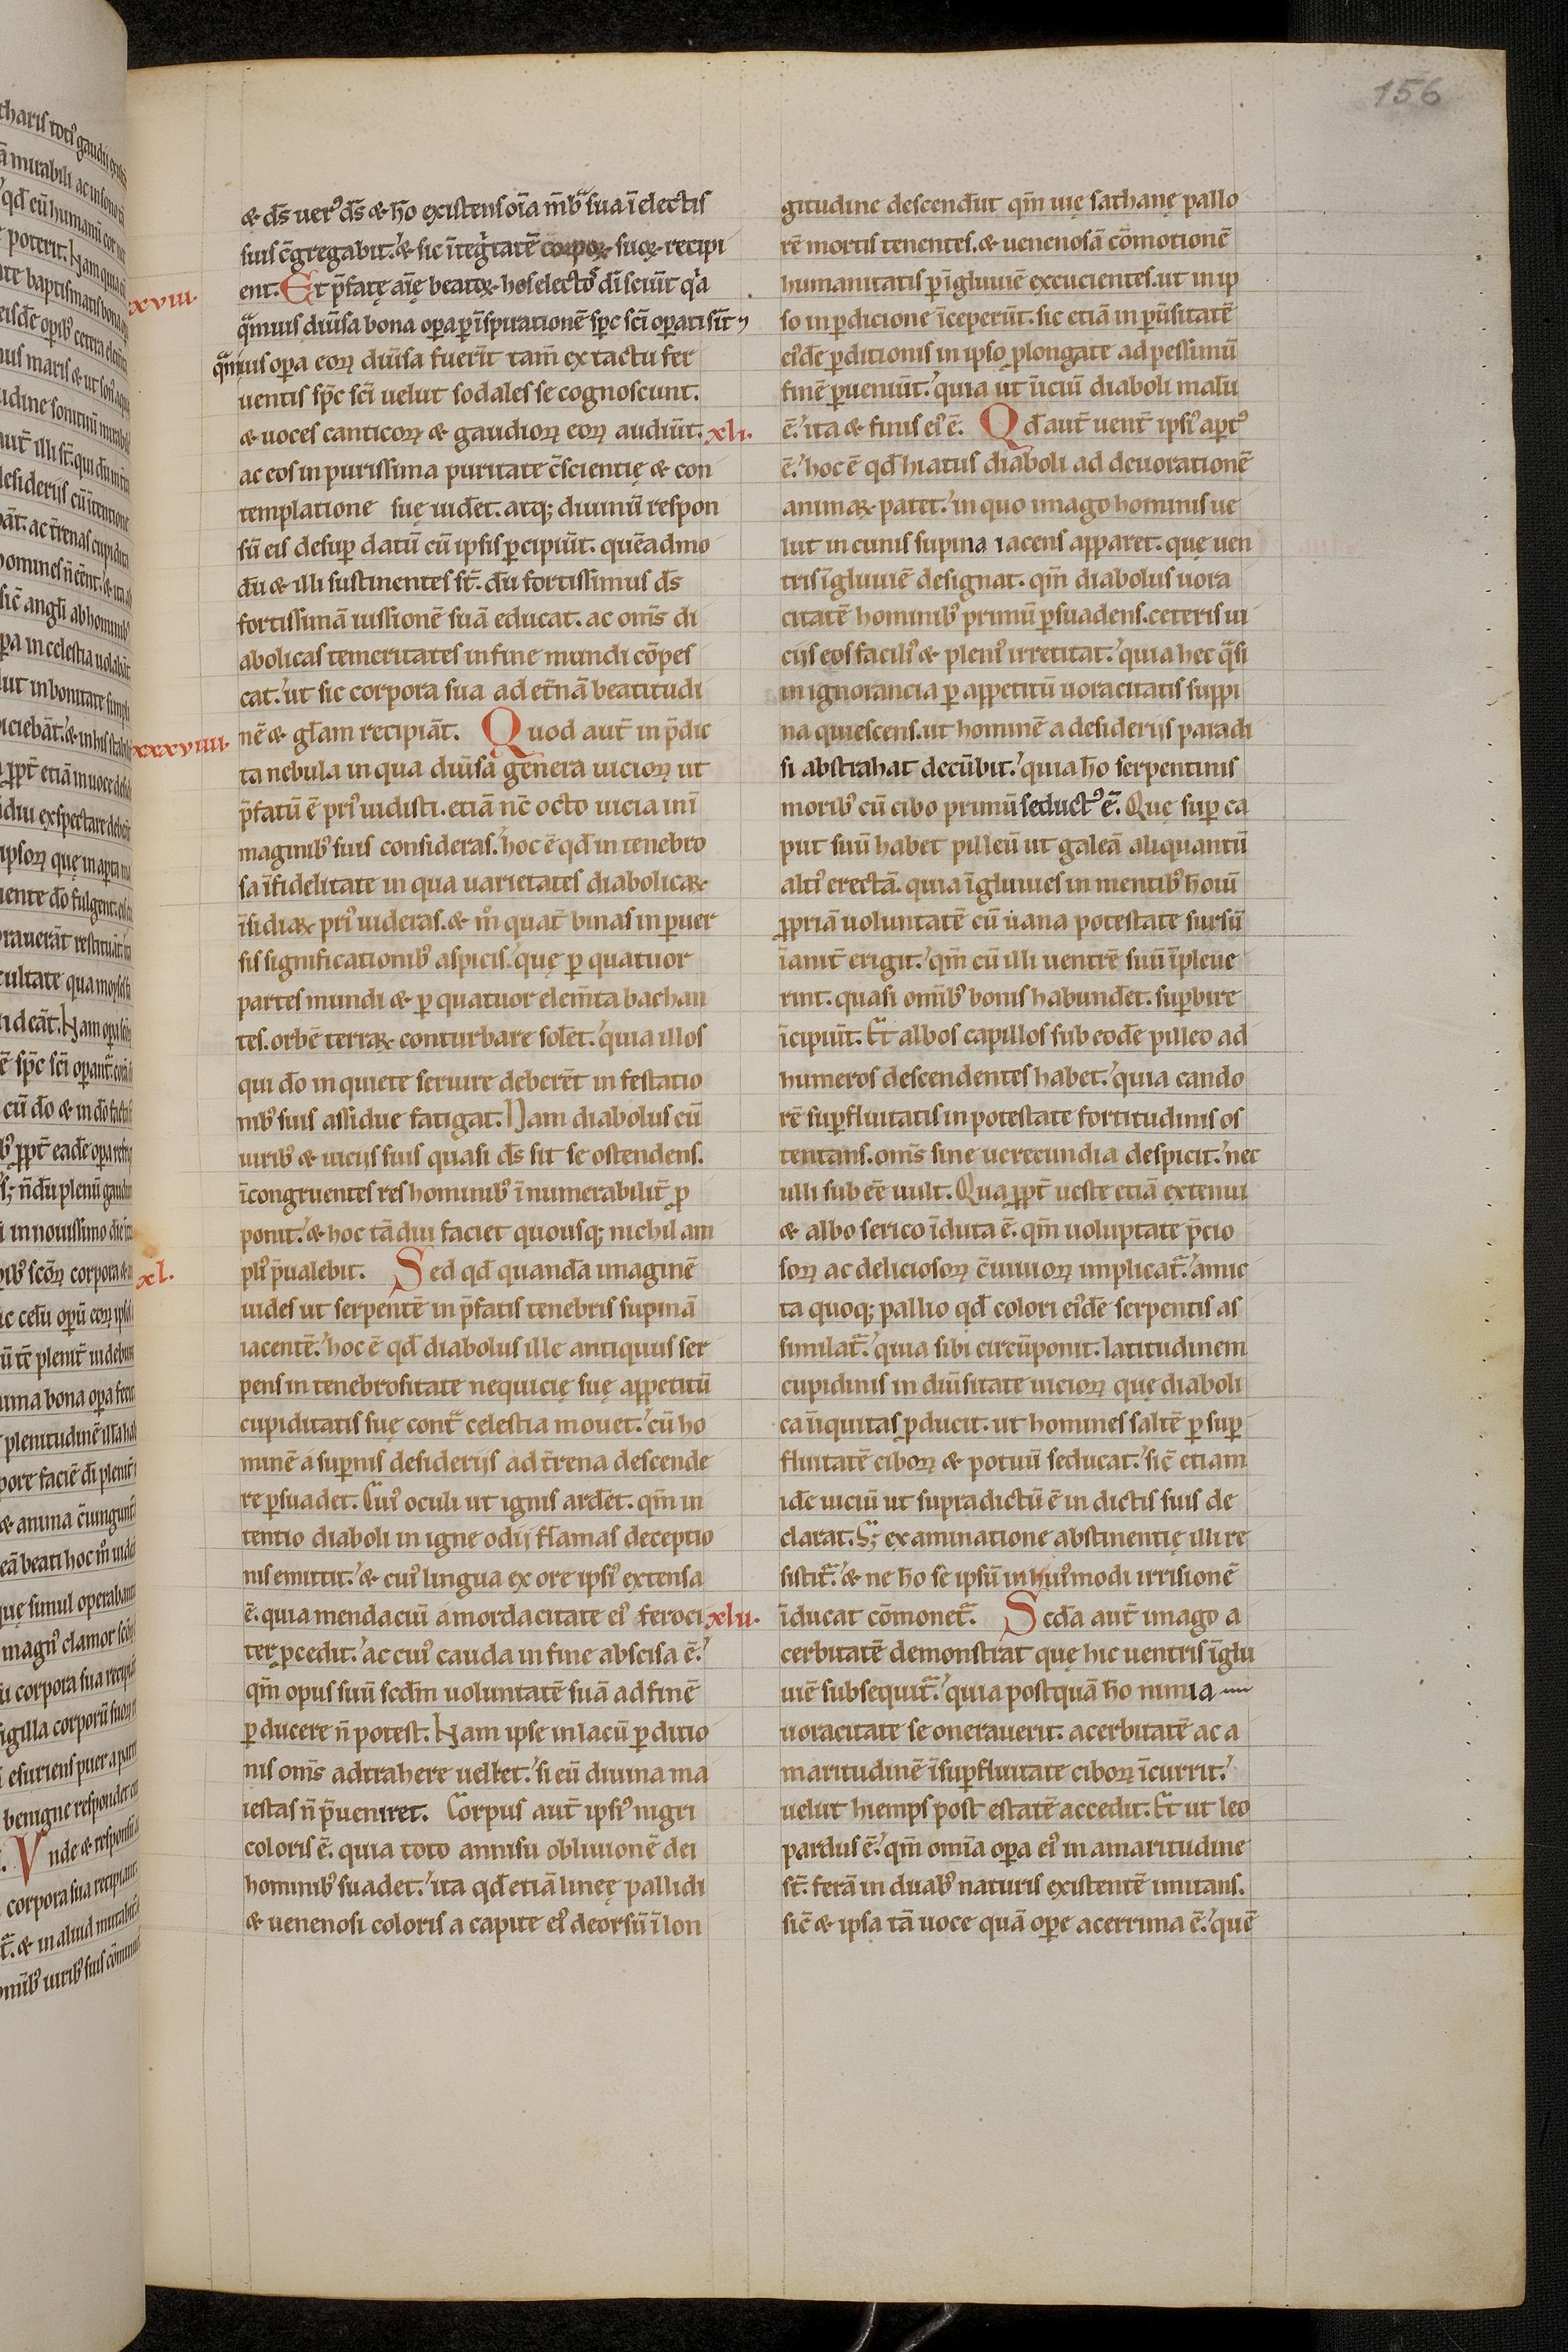 156
& dſ̄ uer᷒ dſ̄ & h̄o exiſtenſ oīa m̄bͣ ſua ī electiſ
ſuiſ c̄gregabit. & ſic ītegͥtatē corpoꝝ ſuoꝝ recipi
xxxviii.
ent. Et p̄fatę aīę beatoꝝ hoſ electoſ dī ſciūt qͥa
qͣmuiſ diūſa bona oꝑa ꝑ īſpirationē ſp̄c ſc̄i oꝑati ſīt ⁊
qͣmuiſ oꝑa eoꝝ diūſa fuerīt tam̄ ex tactu fer
uentiſ ſp̄c ſc̄i uelut ſodaleſ ſe cognoſcunt.
& uoceſ canticoꝝ & gaudioꝝ eoꝝ audiūt.
ac eoſ in puriſſima puritate c̄ſcientię & con
templatione ſuę uidēt. atq; diuinū reſpon
ſū eiſ deſuꝑ datū cū ipſiſ ꝑcipiūt. quēadmo
dū & illi ſuſtinenteſ ſt̄. dū fortiſſimuſ dſ̄
fortiſſimā iuſſionē ſuā educat. ac om̄ſ di
abolicaſ temeritateſ in fine mundi cōpeſ
cat. ut ſic corpora ſua ad et̄nā beatitudi
xxxviiii.
nē & gl̄am recipiāt. Quod aut̄ in p̄dic
ta nebula in qua diūſa genera uicioꝝ ut
p̄fatū ē pri᷒ uidiſti. etiā nc̄ octo uicia in ī
maginib᷒ ſuiſ conſideraſ. hoc ē qd̄ in tenebro
ſa īfidelitate in qua uarietateſ diabolicaꝝ
īſidiaꝝ pri᷒ uideraſ. & mͦ quat̄ binaſ in ꝑuer
ſiſ ſignificationib᷒ aſpiciſ. quę ꝑ quatuor
parteſ mundi & ꝑ quatuor elem̄ta bachan
teſ. orbē terraꝝ conturbare ſolēt. quia illoſ
qui dō in quiete ſeruire deberēt in feſtatio
nib᷒ ſuiſ aſſidue fatigat. Nam diaboluſ cū
uirib᷒ & uiciiſ ſuiſ quaſi dſ̄ ſit ſe oſtendenſ.
īcongruenteſ reſ hominib᷒ īnumerabilit̄ ꝓ
ponit. & hoc tā diu faciet quouſq; nichil am
xl.
pli᷒ p̄ualebit. Sed qd̄ quandā imaginē
uideſ ut ſerpentē in p̄fatiſ tenebriſ ſupinā
iacentē. hoc ē qd̄ diaboluſ ille antiquuſ ſer
penſ in tenebroſitate nequicię ſuę appetitū
cupiditatiſ ſuę contͣ celeſtia mouet. cū ho
minē a ſuꝑniſ deſideriiſ ad t̄rena deſcende
re ꝑſuadet. Cui᷒ oculi ut igniſ ardēt. qm̄ in
tentio diaboli in igne odii flāmaſ deceptio
niſ emittit. & cui᷒ lingua ex ore ipſi᷒ extenſa
ē. quia mendaciū a mordacitate ei᷒ feroci
ter ꝓcedit. ac cui᷒ cauda in fine abſciſa ē.
qm̄ opuſ ſuū ſcd̄m uoluntatē ſuā ad finē
ꝑducere n̄ poteſt. Nam ipſe in lacū ꝑditio
niſ om̄ſ adtrahere uellet. ſi eū diuina ma
ieſtaſ n̄ p̄ueniret. Corpuſ aut̄ ipſi᷒ nigri
coloriſ ē. quia toto anniſu obliuionē dei
hominib᷒ ſuadet. ita qd̄ etiā lineę pallidi
& uenenoſi coloriſ a capite ei᷒ deorſū ī lon
gitudine deſcendūt qm̄ uię ſathanę pallo
rē mortiſ tenenteſ. & uenenoſā cōmotionē
humanitatiſ ꝑ īgluuiē excucienteſ. ut in ip
ſo in ꝑdicione īceperūt. ſic etiā in ꝑūſitatē
ei᷒dē ꝑditioniſ in ipſo ꝓlongate ad peſſimū
finē ꝑueniūt. quia ut īiciū diaboli malū
xli.
ē. ita & finiſ ei᷒ ē. Qd̄ aut̄ uent̄ ipſi᷒ aꝑt᷒
ē. hoc ē qd̄ hiatuſ diaboli ad deuorationē
animaꝝ patet. in quo imago hominiſ ue
lut in cuniſ ſupina iacenſ apparet. quę uen
triſ īgluuiē deſignat. qm̄ diaboluſ uora
citatē hominib᷒ primū ꝑſuadenſ. ceteriſ ui
ciiſ eoſ facili᷒ & pleni᷒ irretitat. quia hec qͣſi
in ignorancia ꝑ appetitū uoracitatiſ ſuppi
na quieſcenſ. ut hominē a deſideriiſ paradi
ſi abſtrahat decūbit. quia h̄o ſerpentiniſ
morib᷒ cū cibo primū ſeduct᷒ ē. Quę ſuꝑ ca
put ſuū habet pilleū ut galeā aliquantū
alti᷒ erectā. quia īgluuieſ in mentib᷒ hoīū
ꝓpriā uoluntatē cū uana poteſtate ſurſū
īanit̄ erigit. qm̄ cū illi uentrē ſuū īpleue
rint. quaſi om̄ib᷒ boniſ habundēt. ſuꝑbire
īcipiūt. Et alboſ capilloſ ſub eodē pilleo ad
humeroſ deſcendenteſ habet. quia cando
rē ſuꝑfluitatiſ in poteſtate fortitudiniſ oſ
tentanſ. om̄ſ ſine uerecundia deſpicit. nec
ulli ſub eē uult. Qua ꝓpt̄ ueſte etiā ex tenui
& albo ſerico īduta ē. qm̄ uoluptate p̄cio
ſoꝝ ac delicioſoꝝ c̄uiuioꝝ implicatͣ. amic
ta quoq; pallio qd̄ colori ei᷒dē ſerpentiſ aſ
ſimilatͣ. quia ſibi circūponit. latitudinem
cupidiniſ in diūſitate uicioꝝ quę diaboli
ca īiquitaſ ꝓducit. ut homineſ ſaltē ꝑ ſuꝑ
fluitatē ciboꝝ & potuū ſeducat. ſic̄ etiam
idē uiciū ut ſupradictū ē in dictiſ ſuiſ de
clarat. S; examinatione abſtinentię illi re
ſiſtitͣ. & ne h̄o ſe ipſū in hui᷒modi irriſionē
xlii.
īducat cōmonetͣ. Scd̄a aut̄ imago a
cerbitatē demonſtrat quę hic uentriſ īglu
uiē ſubſequitͣ. quia poſtquā h̄o nimia
uoracitate ſe onerauerit. acerbitatē ac a
maritudinē ī ſuꝑfluitate ciboꝝ īcurrit.
uelut hiempſ poſt eſtatē accedit. Et ut leo
parduſ ē. qm̄ om̄ia oꝑa ei᷒ in amaritudine
ſt̄. ferā in duab᷒ naturiſ exiſtentē imitanſ.
ſic̄ & ipſa tā uoce quā oꝑe acerrima ē. quē